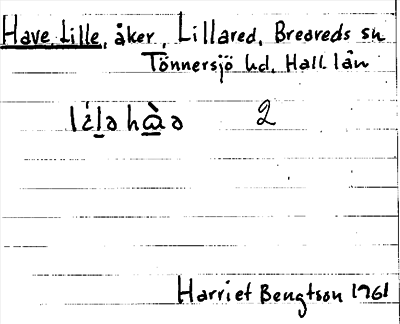 Have, Lille, åker, Lillared, Breareds sn
Tönnersjö hd. Hall. län
lí̀l̠ə hὰ̠ə 2
Harriet Bengtson 1961